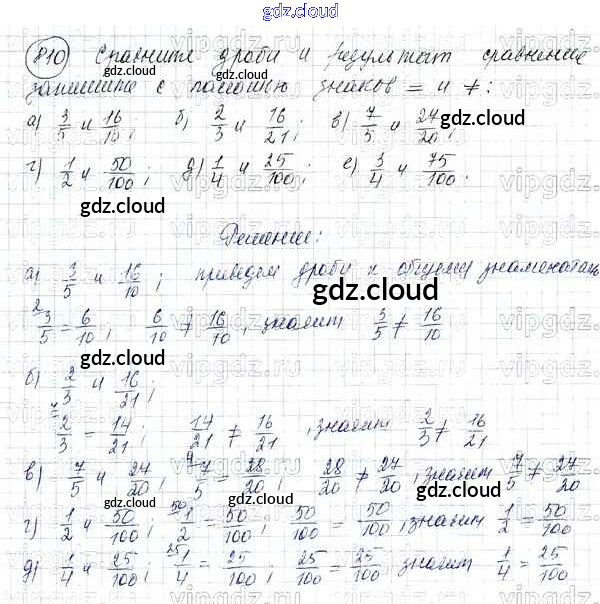 gdz.cloud
810 Сравните дроби и результат сравнения
gdz.cloud
запишите с помощью знаков = и ≠:
а) 3/5 и 16/10; б) 2/3 и 16/21; в) 7/5 и 27/20;
gdz.cloud gdz.cloud gdz.cloud
г) 1/2 и 50/100; д) 1/4 и 25/100; е) 3/4 и 75/100.
gdz.cloud
Решение:
а) 3/5 и 16/10; приведем дроби к общему знаменателю
gdz.cloud
3/5 = 6/10, 6/10 ≠ 16/10, значит 3/5 ≠ 16/10
б) 2/3 и 16/21;
2/3 = 14/21; 14/21 ≠ 16/21, значит 2/3 ≠ 16/21
в) 7/5 и 27/20; 7/5 = 28/20; 28/20 ≠ 27/20, значит 7/5 ≠ 27/20
gdz.cloud gdz.cloud gdz.cloud
г) 1/2 и 50/100; 1/2 = 50/100; 50/100 = 50/100, значит 1/2 = 50/100
gdz.cloud
д) 1/4 и 25/100; 1/4 = 25/100; 25/100 = 25/100 значит 1/4 = 25/100